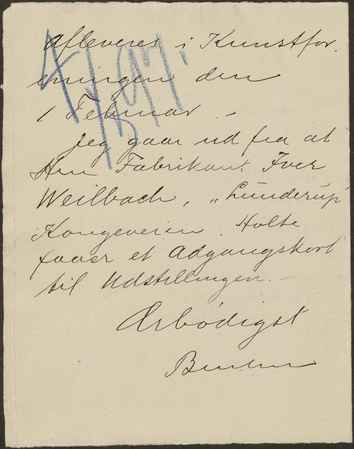 afleveres i Kunstfor
eningen den
1 Februar. –
Jeg gaar ud fra at
Herr Fabrikant Iver
Weilbach, „Lunderup"
Kongeveien Holte
faaer et Adgangskort
til Udstillingen. –
Ærbödigst